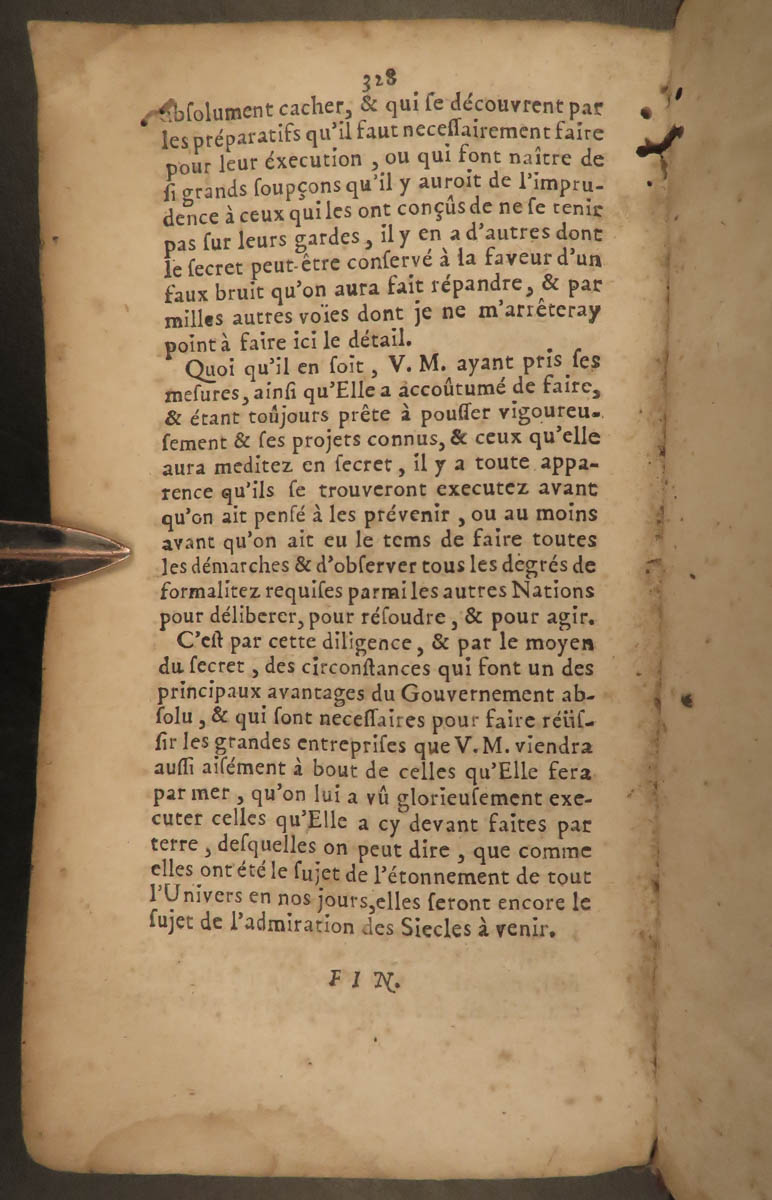 328
abſolument cacher, & qui ſe découvrent par
les préparatifs qu'il faut neceſſairement faire
pour leur éxecution, ou qui font naître de
ſi grands ſoupçons qu'il y auroit de l'impru-
dence à ceux qui les ont conçûs de ne ſe tenir
pas ſur leurs gardes, il y en a d'autres dont
le ſecret peut-être conſervé à la faveur d'un
faux bruit qu'on aura fait répandre, & par
milles autres voïes dont je ne m'arrêteray
point à faire ici le détail.
Quoi qu'il en ſoit, V. M. ayant pris ſes
meſures, ainſi qu'Elle a accoûtumé de faire,
& étant toûjours prête à pouſſer vigoureu-
ſement & ſes projets connus, & ceux qu'elle
aura meditez en ſecret, il y a toute appa-
rence qu'ils ſe trouveront executez avant
qu'on ait penſé à les prévenir, ou au moins
avant qu'on ait eu le tems de faire toutes
les démarches & d'obſerver tous les dégrés de
formalitez requiſes parmi les autres Nations
pour déliberer, pour réſoudre, & pour agir.
C'eſt par cette diligence, & par le moyen
du ſecret, des circonſtances qui font un des
principaux avantages du Gouvernement ab-
ſolu, & qui ſont neceſſaires pour faire réüſ-
ſir les grandes entrepriſes que V. M. viendra
auſſi aiſément à bout de celles qu'Elle fera
par mer, qu'on lui a vû glorieuſement exe-
cuter celles qu'Elle a cy devant faites par
terre, deſquelles on peut dire, que comme
elles ont été le ſujet de l'étonnement de tout
l'Univers en nos jours, elles ſeront encore le
ſujet de l'admiration des Siecles à venir.
FIN.